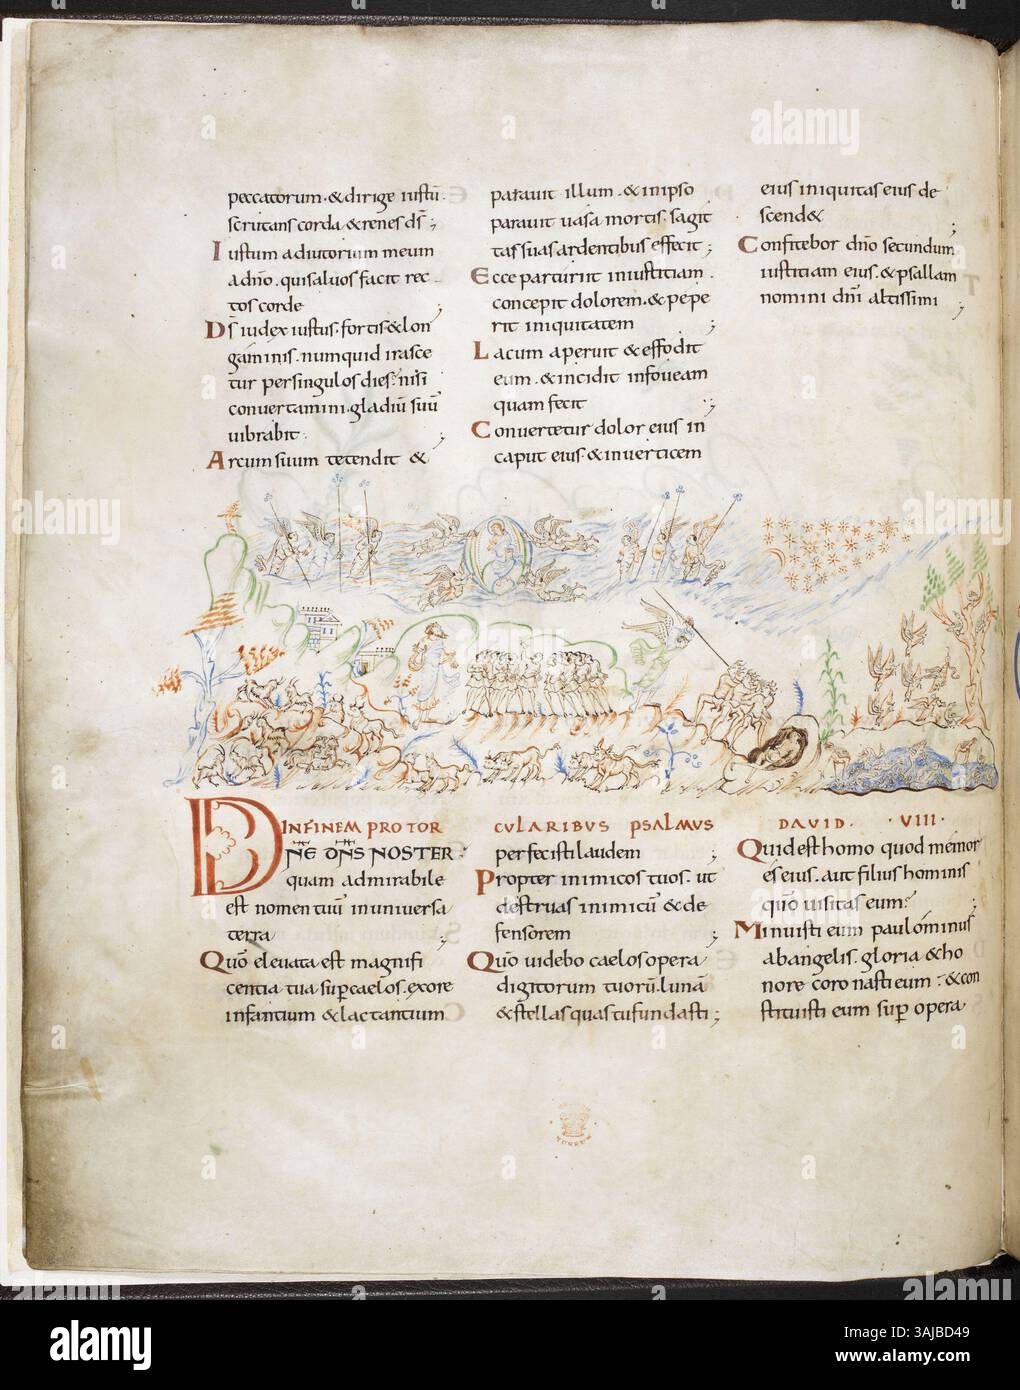 peccatorum·&dirige iustū·
scrutans corda &renes ds̄;
Iustum adiutorium meum
adn̄o·quisaluos facit rec
tos corde ;
Ds̄ iudex iustus·fortis&lon
gaminis·numquid irasce
tur persingulos dies?nisi
conuertamini·gladiū suū
uibrabit· ;
Arcum suum tetendit &
parauit illum·&inipso
parauit uasa mortis·sagit
tas suas ardentibus effecit;
Ecce parturiit iniustitiam·
concepit dolorem·&pepe
rit iniquitatem ;
Lacum aperuit &effodit
eum·&incidit infoueam
quam fecit ;
Conuertetur dolor eius in
caput eius·&inuerticem
eius iniquitas eius de
scend& ;
Confitebor dn̄o secundum
iustitiam eius·&psallam
nomini dn̄i altissimi ;
INFINEM PROTOR
DN̄E DN̄S NOSTER·
quam admirabile
est nomen tuū inuniuersa
terra ;
Quō eleuata est magnifi
centia tua sup caelos·exore
infantium &lactantium
CULARIBUS PSALMUS
perfecisti laudem ;
Propter inimicos tuos·ut
destruas inimicū &de
fensorem ;
Quō uidebo caelos opera
digitorum tuorū·lunā
&stellas quas tu fundasti;
DAVID· ·VIII·
Quid est homo quod memor
es eius·aut filius hominis
quō uisitas eum? ;
Minuisti eum paulominus
abangelis·gloria &ho
nore coronasti eum·&con
stituisti eum sup opera
alamy
Image ID: 3AJBD49
www.alamy.com